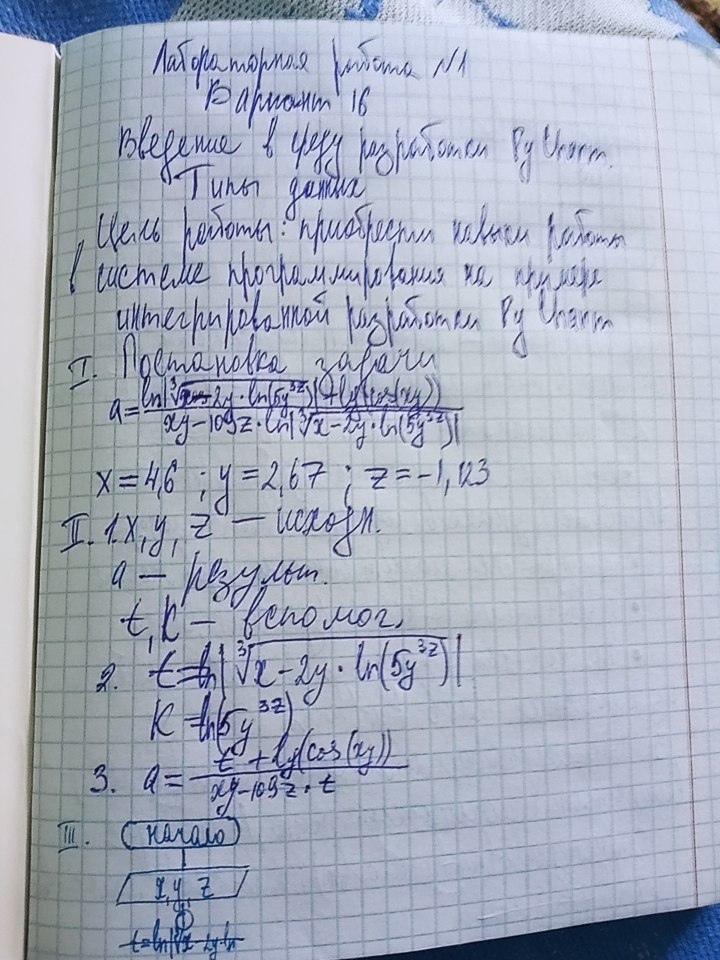 Лабораторная работа №1
Вариант 16
Введение в среду разработки PyCharm.
Типы данных
Цель работы: приобрести навыки работы
в системе программирования на примере
интегрированной разработки PyCharm
I. Постановка задачи
a = (ln|∛(x-2y·ln(5y^3z))| + lg(cos(xy))) / (xy-109z·ln|∛(x-2y·ln(5y^3z))|)
x=4,6 ; y=2,67 ; z=-1,123
II. 1. x, y, z — исходн.
a — результ.
t, K — вспомог.
2. t=ln|∛(x-2y·ln(5y^3z))|
K=ln(5y^3z)
3. a = (t+lg(cos(xy))) / (xy-109z·t)
III. начало
x, y, z
1
t=ln|∛x-2y·ln